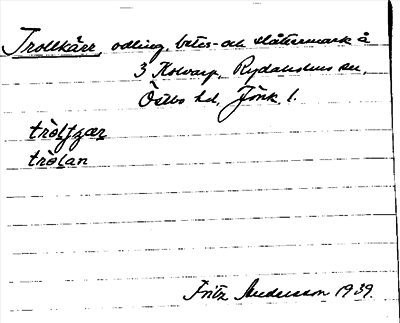 Trollkärr, odling, betes- och slåttermark å
3 Kolvarp, Rydaholms sn,
Östbo hd, Jönk. l.
tròl̥ʃɛær
tròlan
Fritz Andersson 1939.